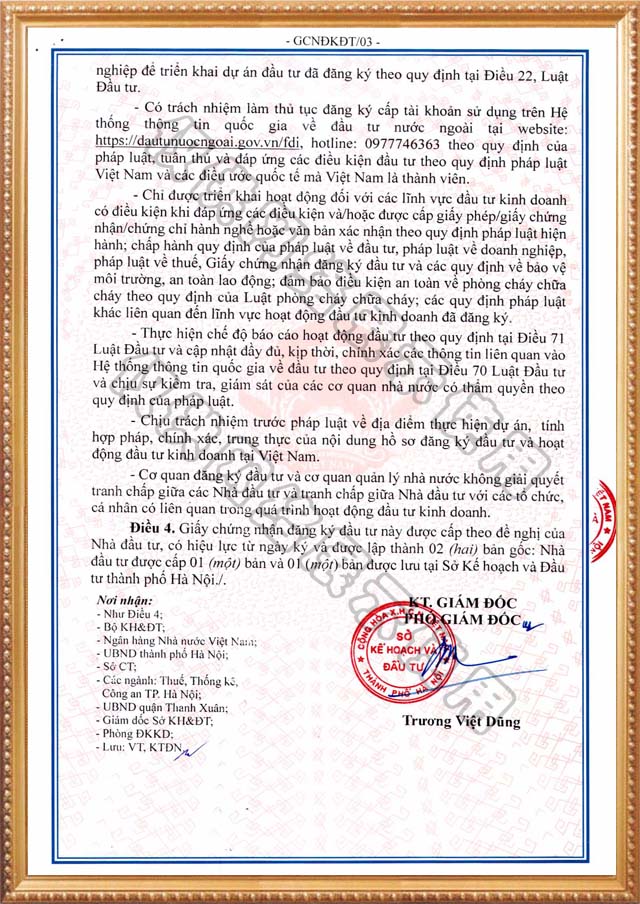 - GCNĐKĐT/03 -
nghiệp để triển khai dự án đầu tư đã đăng ký theo quy định tại Điều 22, Luật
Đầu tư.
- Có trách nhiệm làm thủ tục đăng ký cấp tài khoản sử dụng trên Hệ
thống thông tin quốc gia về đầu tư nước ngoài tại website:
https://dautunuocngoai.gov.vn/fdi, hotline: 0977746363 theo quy định của
pháp luật, tuân thủ và đáp ứng các điều kiện đầu tư theo quy định pháp luật
Việt Nam và các điều ước quốc tế mà Việt Nam là thành viên.
- Chỉ được triển khai hoạt động đối với các lĩnh vực đầu tư kinh doanh
có điều kiện khi đáp ứng các điều kiện và/hoặc được cấp giấy phép/giấy chứng
nhận/chứng chỉ hành nghề hoặc văn bản xác nhận theo quy định pháp luật hiện
hành; chấp hành quy định của pháp luật về đầu tư, pháp luật về doanh nghiệp,
pháp luật về thuế, Giấy chứng nhận đăng ký đầu tư và các quy định về bảo vệ
môi trường, an toàn lao động; đảm bảo điều kiện an toàn về phòng cháy chữa
cháy theo quy định của Luật phòng cháy chữa cháy; các quy định pháp luật
khác liên quan đến lĩnh vực hoạt động đầu tư kinh doanh đã đăng ký.
- Thực hiện chế độ báo cáo hoạt động đầu tư theo quy định tại Điều 71
Luật Đầu tư và cập nhật đầy đủ, kịp thời, chính xác các thông tin liên quan vào
Hệ thống thông tin quốc gia về đầu tư theo quy định tại Điều 70 Luật Đầu tư
và chịu sự kiểm tra, giám sát của các cơ quan nhà nước có thẩm quyền theo
quy định của pháp luật.
- Chịu trách nhiệm trước pháp luật về địa điểm thực hiện dự án, tính
hợp pháp, chính xác, trung thực của nội dung hồ sơ đăng ký đầu tư và hoạt
động đầu tư kinh doanh tại Việt Nam.
- Cơ quan đăng ký đầu tư và cơ quan quản lý nhà nước không giải quyết
tranh chấp giữa các Nhà đầu tư và tranh chấp giữa Nhà đầu tư với các tổ chức,
cá nhân có liên quan trong quá trình hoạt động đầu tư kinh doanh.
Điều 4. Giấy chứng nhận đăng ký đầu tư này được cấp theo đề nghị của
Nhà đầu tư, có hiệu lực từ ngày ký và được lập thành 02 (hai) bản gốc: Nhà
đầu tư được cấp 01 (một) bản và 01 (một) bản được lưu tại Sở Kế hoạch và Đầu
tư thành phố Hà Nội./.
Nơi nhận:
- Như Điều 4;
- Bộ KH&ĐT;
- Ngân hàng Nhà nước Việt Nam;
- UBND thành phố Hà Nội;
- Sở CT;
- Các ngành: Thuế, Thống kê,
Công an TP. Hà Nội;
- UBND quận Thanh Xuân;
- Giám đốc Sở KH&ĐT;
- Phòng ĐKKD;
- Lưu: VT, KTĐN
KT. GIÁM ĐỐC
PHÓ GIÁM ĐỐC
CỘNG HÒA X.H.C.N VIỆT NAM
SỞ
KẾ HOẠCH VÀ
ĐẦU TƯ
THÀNH PHỐ HÀ NỘI
Trương Việt Dũng
VIỆT NAM